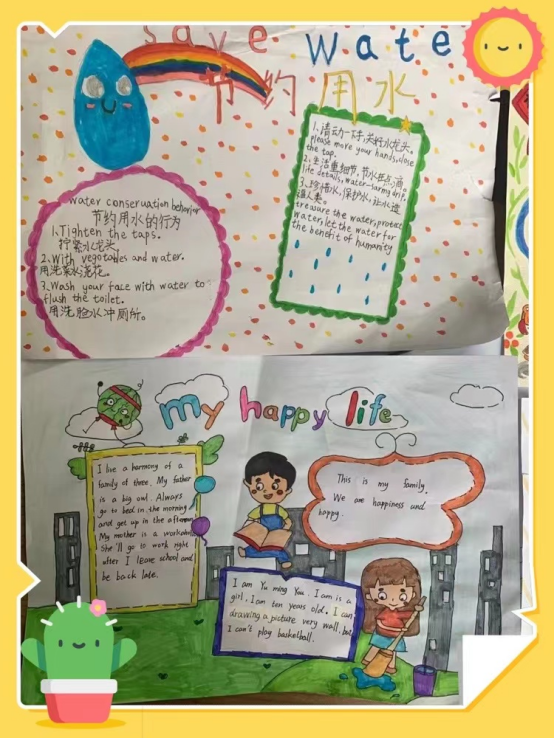 Save Wate
节约用水
water conservation behavior
节约用水的行为
1.Tighten the taps.
拧紧水龙头。
2.With vegetables and water.
用洗菜水浇花。
3.Wash your face with water to
flush the toilet.
用洗脸水冲厕所。
1、清动一下手,关好水龙头。
please move your hands,close
the tap.
2、生活重细节,节水在点滴。
life details, water-saving drip.
3、珍惜水,保护水,让水造
福人类。
treasure the water,protect
water,let the water for
the benefit of humanity
my happy life
I live a harmony of a
family of three. My father
is a big owl. Always
go to bed in the morning
and get up in the afternoon
My mother is a workaholic
She'll go to work right
after I leave school and
be back late.
This is my family.
We are happiness und
happy.
I am Yu ming You. I am is a
girl. I am ten years old. I can
drawing a picture very wall, but
I can't play basketball.